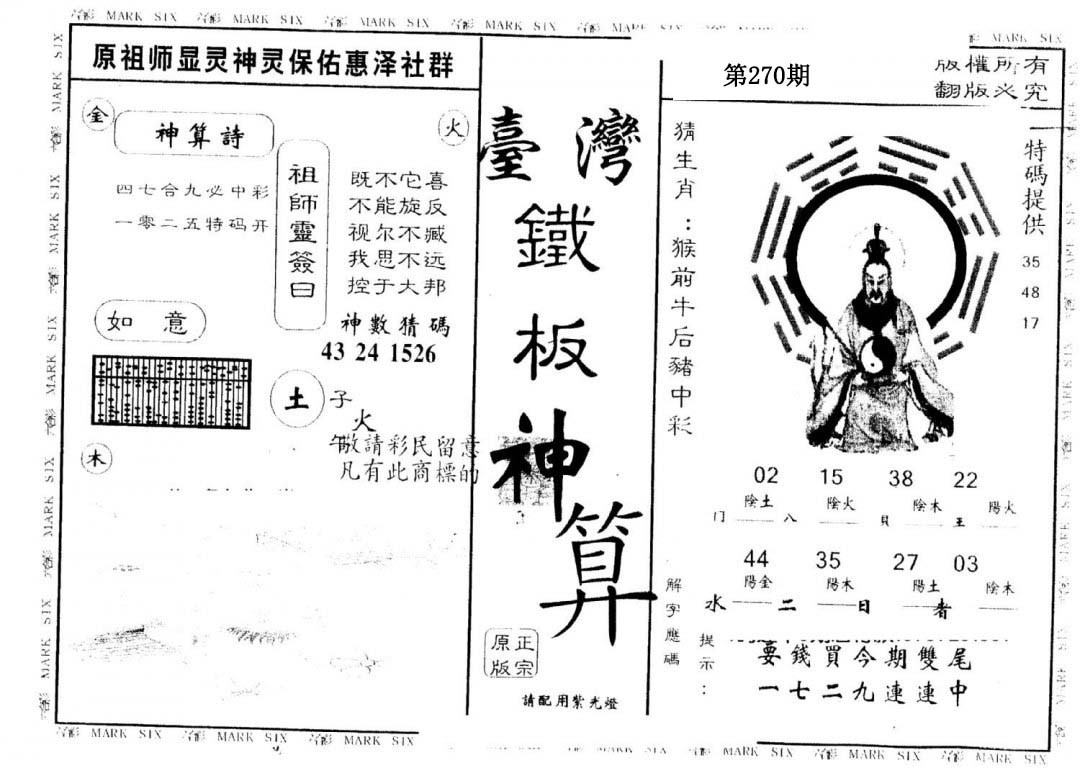 MARK SIX MARK SIX MARK SIX MARK SIX MARK SIX
原祖师显灵神灵保佑惠泽社群
金
神算詩
火
四七合九必中彩
一零二五特码开
祖師靈簽曰
既不它喜
不能旋反
视尔不臧
我思不远
控于大邦
如意
神數猜碼
43 24 1526
土
子
火
午
木
敬請彩民留意
凡有此商標的
臺灣
鐵
板
神
算
正宗
原版
請配用紫光燈
第270期
版權所有
翻版必究
猜生肖：猴前牛后豬中彩
特碼提供
35
48
17
02 15 38 22
陰土 陰火 陰木 陽火
门 八 貝 王
44 35 27 03
陽金 陽木 陽土 陰木
水 二 日 者
解字應碼
提示：
要錢買今期雙尾
一七二九連連中
MARK SIX MARK SIX MARK SIX MARK SIX MARK SIX MARK SIX MARK SIX